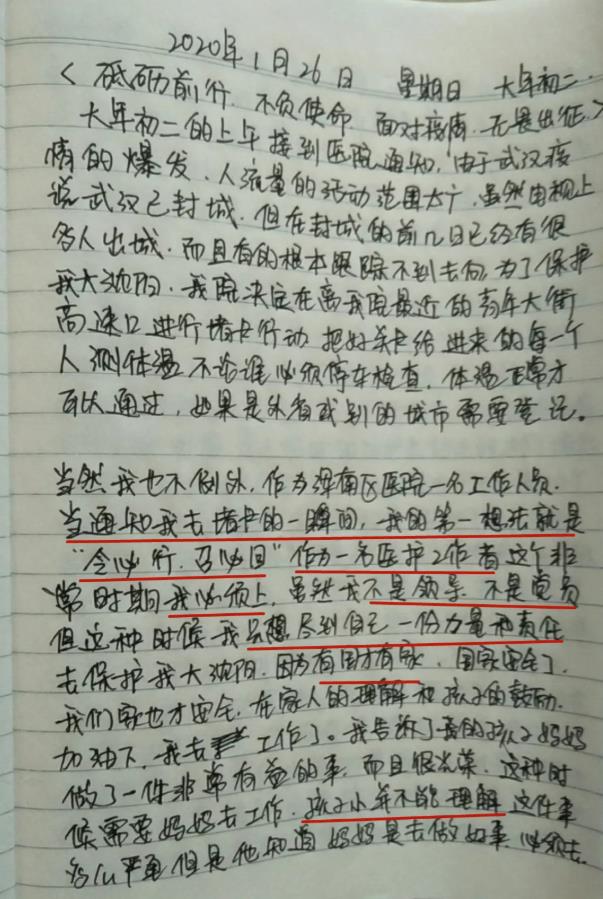 2020年1月26日 星期日 大年初二.
<砥砺前行.不负使命.面对疫情.无畏出征>
大年初二的上午接到医院通知,由于武汉疫
情的爆发.人流量的活动范围太广,虽然电视上
说武汉已封城.但在封城的前几日已经有很
多人出城.而且有的根本跟踪不到去向,为了保护
我大沈阳.我院决定在离我院最近的青年大街
高速口进行堵卡行动.把好关卡给进来的每一个
人测体温不论谁必须停车检查.体温正常才
可以通过,如果是外省或别的城市需要登记。
当然我也不例外.作为浑南区医院一名工作人员.
当通知我去堵卡的一瞬间,我的第一想法就是
"令必行.召必回"作为一名医护工作者这个非
常时期我必须上.虽然我不是领导.不是党员
但这种时候我只想尽到自己一份力量和责任
去保护我大沈阳.因为有国才有家.国家安全了.
我们家也才安全.在家人的理解和孩子的鼓励.
加油下.我去工作了。我告诉了我的孩子妈妈
做了一件非常有益的事.而且很光荣.这种时
候需要妈妈去工作.孩子小并不能理解这件事
多么严重但是他知道妈妈是去做好事.必须去.